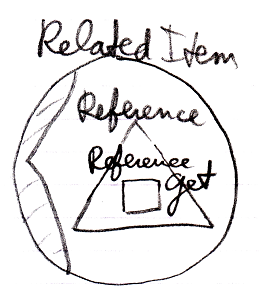 Related Item
Reference
Reference
get